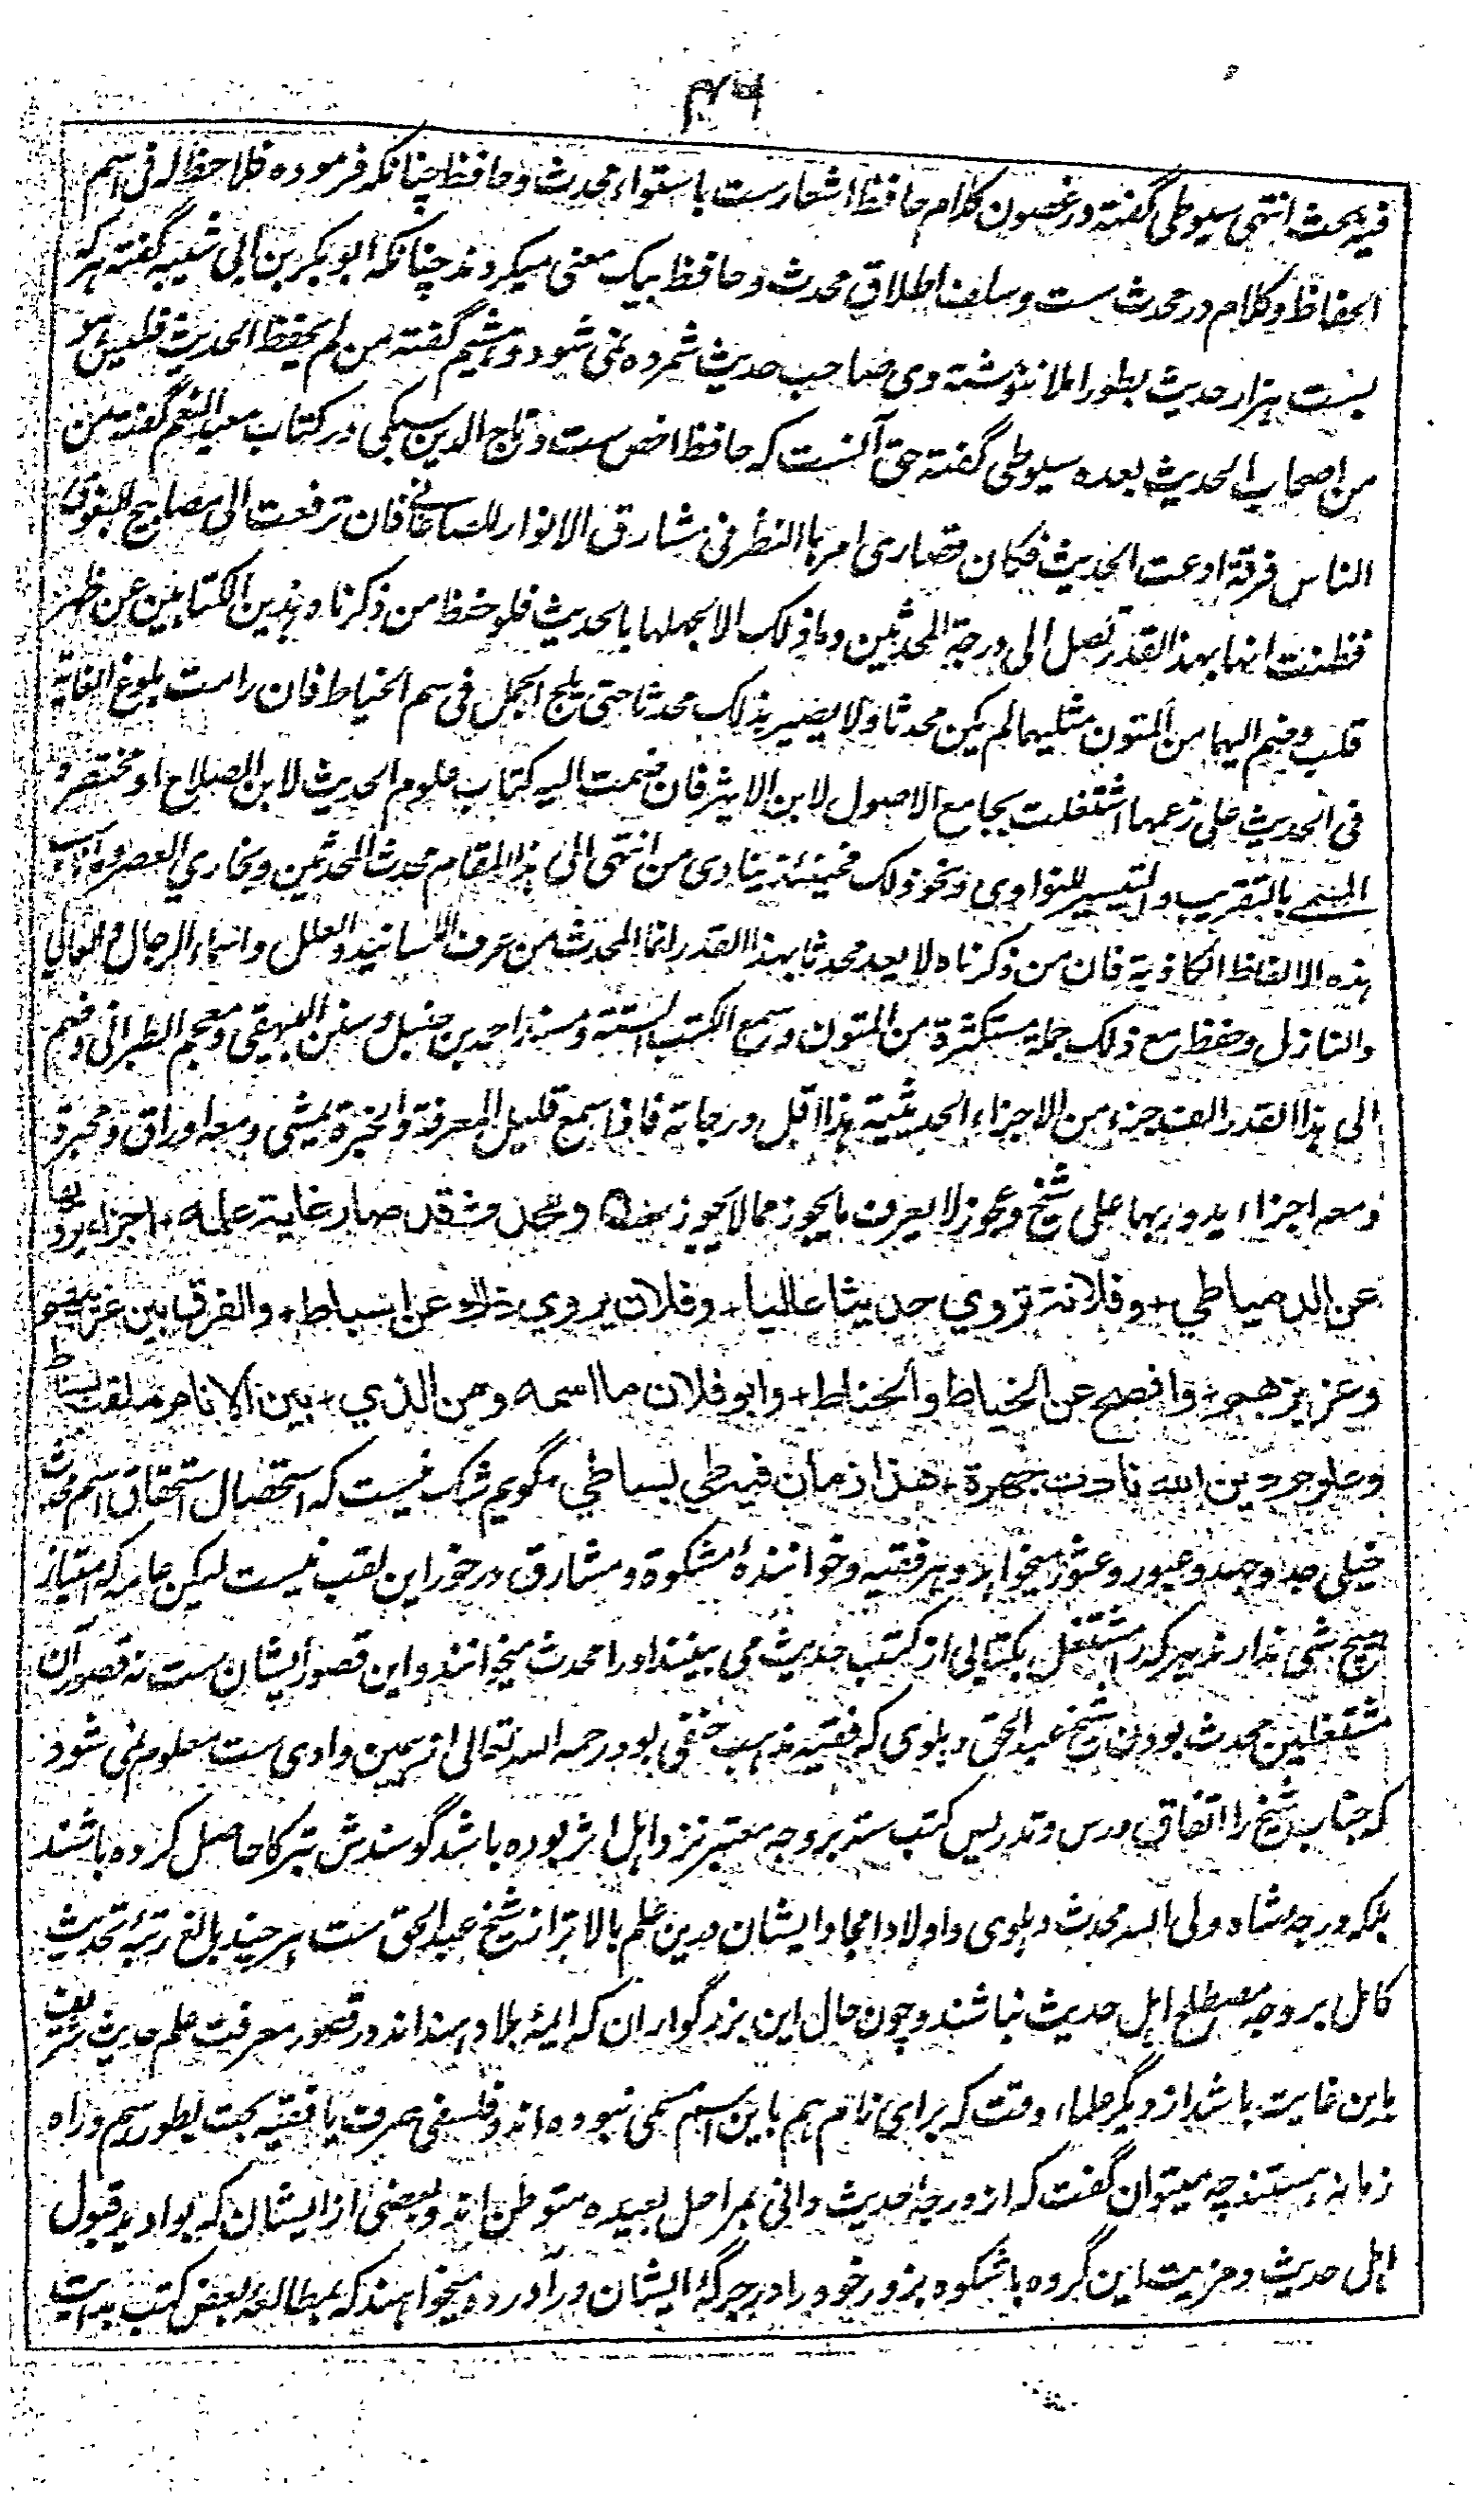 ۴۶
فیه بحث انتهی سیوطی گفته در غصون کلام حافظ اشعارست باستواء محدث و حافظ چنانکه فرموده فلا حظ له فی اسم
الحفاظ و کلام در محدث ست و سلف اطلاق محدث و حافظ بیک معنی میکردند چنانکه ابو بکر بن ابی شیبه گفته هر که
بست هزار حدیث بطور املا ننوشته وی صاحب حدیث شمرده نمی شود و هشیم گفته من لم یحفظ الحدیث فلیس هو
من اصحاب الحدیث بعده سیوطی گفته حق آنست که حافظ اخص ست و تاج الدین سبکی در کتاب معید النعم گفته من
الناس فرقة ادعت الحدیث فکان قصاری امرها النظر فی مشارق الانوار للصاغانی فان ترفعت الی مصابیح البغوی
فظننت انها بهذا القدر تصل الی درجة المحدثین وما ذلک الا بجهلها بالحدیث فلو حفظ من ذکرناه هذین الکتابین عن ظهر
قلب وضم الیهما من المتون مثلیهما لم یکن محدثا ولا یصیر بذلک محدثا حتی یلج الجمل فی سم الخیاط فان رامت بلوغ الغایة
فی الحدیث علی زعمها اشتغلت بجامع الاصول لابن الاثیر فان ضمت الیه کتاب علوم الحدیث لابن الصلاح او مختصره
المسمی بالتقریب والتیسیر للنواوی ونحو ذلک فحینئذ ینادی من انتهی الی هذا المقام محدث المحدثین وبخاری العصر وما ناسب
هذه الالفاظ الکاذبة فان من ذکرناه لا یعد محدثا بهذا القدر انما المحدث من عرف المسانید والعلل واسماء الرجال والعالی
والنازل وحفظ مع ذلک جملة مستکثرة من المتون وسمع الکتب الستة ومسند احمد بن حنبل وسنن البیهقی ومعجم الطبرانی وضم
الی هذا القدر الف جزء من الاجزاء الحدیثیة هذا اقل درجاته فاذا سمع قلیل المعرفة والخبرة یمشی ومعه اوراق ومحبرة
ومعه اجزاء یدور بها علی شیخ وعجوز لا یعرف ما یجوز مما لا یجوز ومحدث قد صار غایة علمه + اجزاء یرویها
عن الدمیاطی + وفلانة تروی حدیثا عالیا + وفلان یروی ذاک عن اسباط + والفرق بین
وعزیزهم + وافصح عن الخیاط والحناط + وابو فلان ما اسمه ومن الذی + بین الانام ملقب بسناط
وعلوم دین الله نادت جهرة + هذا زمان فیه طی بساطی، گویم شک نیست که استحصال استحقاق اسم محدث
خیلی جد و جهد و عبور و عثور میخواهد و هر فقیه و خوانندهٔ مشکوة و مشارق درخور این لقب نیست لیکن عامه که امتیاز
هیچ شی ندارند هر که را مشتغل بکتابی از کتب حدیث می بینند او را محدث میخوانند و این قصور ایشان ست نه قصور آن
مشتغلین محدث بودن شیخ عبدالحق دهلوی که فقیه مذهب حنفی بود رحمه الله تعالی از همین وادی ست معلوم نمی شود
که جناب شیخ را اتفاق درس و تدریس کتب سته بر وجه معتبر نزد اهل اثر بوده باشد گو سندش تبرکا حاصل کرده باشند
بلکه درجهٔ شاه ولی الله محدث دهلوی و اولاد امجاد ایشان درین علم بالاتر از شیخ عبدالحق ست هر چند بالغ رتبهٔ تحدیث
کامل بر وجه مصطلح اهل حدیث نباشند و چون حال این بزرگواران که ائمهٔ بلاد هند اند در قصور معرفت علم حدیث شریف
باین غایت باشد از دیگر علماء وقت که برای نام هم باین اسم مسمی نبوده اند و فلسفی صرف یا فقیه بحت بطور رسم و راه
زمانه هستند چه میتوان گفت که از درجهٔ حدیث دانی بمراحل بعیده متوطن اند و بعضی از ایشان که بوادید قبول
اهل حدیث و مزیت این گروه باشکوه بزور خود را در جرگهٔ ایشان درآورده میخواهند که بمطالعهٔ بعض کتب